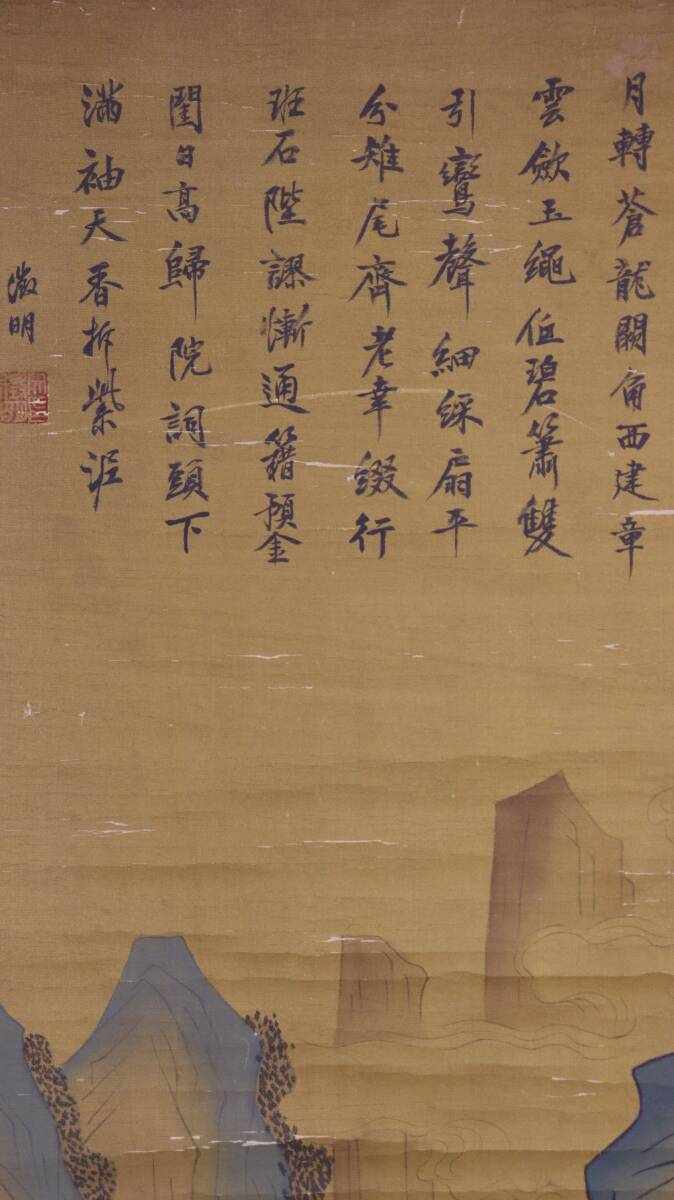 月轉蒼龍闕角西建章
雲歛玉繩低碧簫雙
引鸞聲細綵扇平
分雉尾齊老幸綴行
班石陛謬慚通籍預金
閨日高歸院詞頭下
滿袖天香拆紫泥
徵明